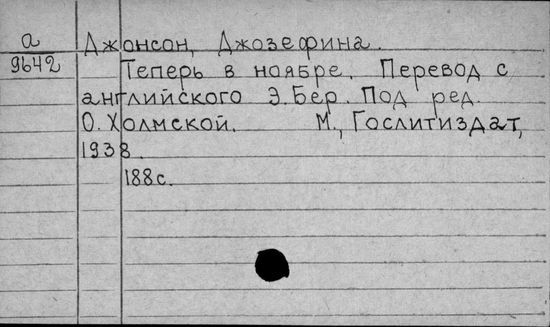 а
9642
Джонсон, Джозефина.
Теперь в ноябре. Перевод с
английского Э. Бер. Под ред.
О. Холмской. М., Гослитиздат,
1938.
188с.